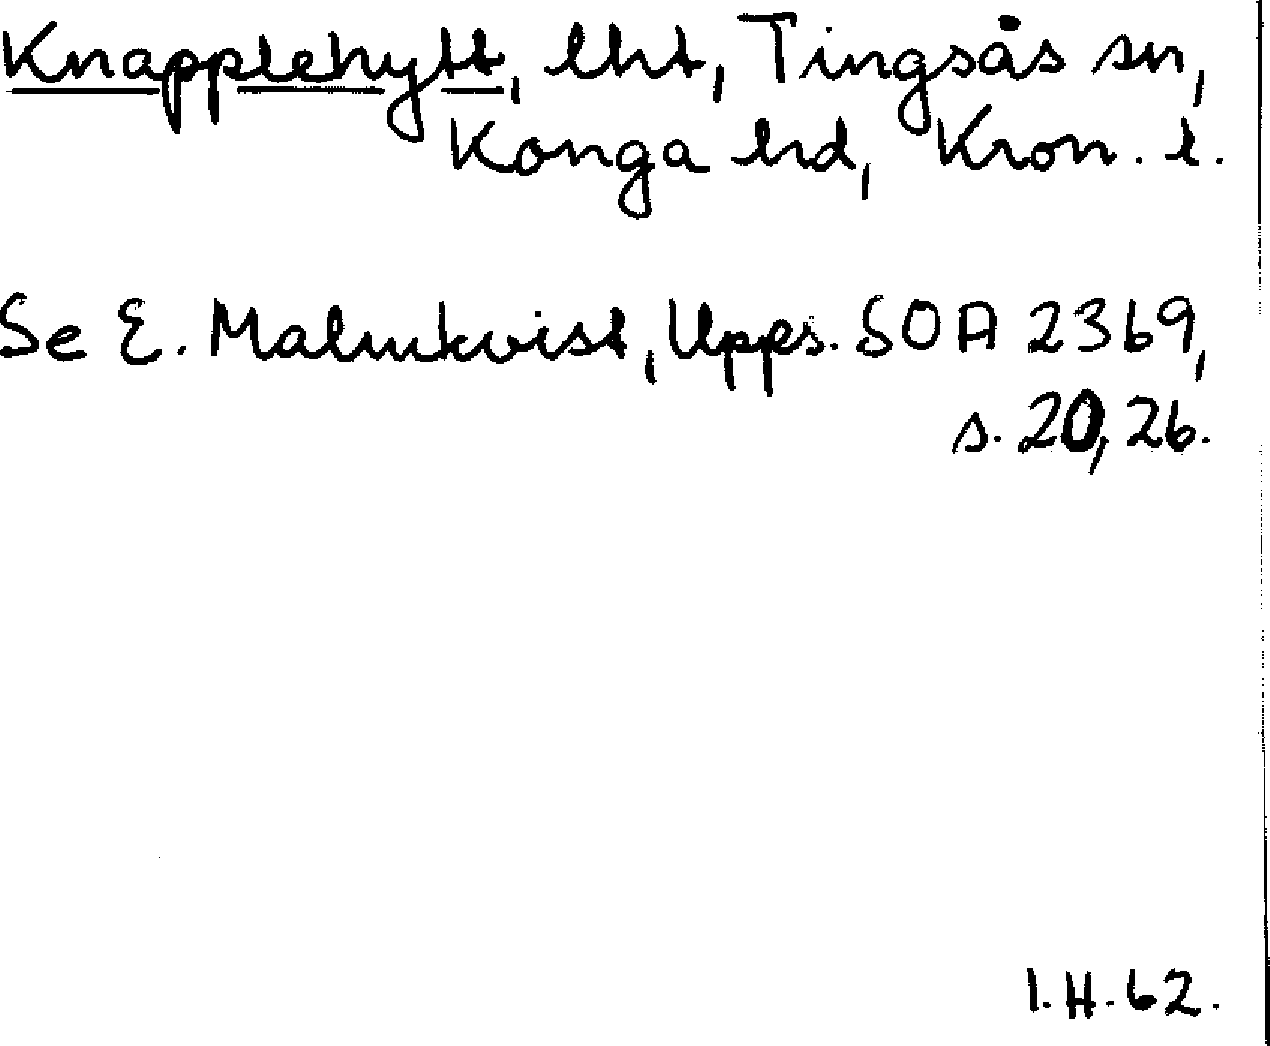 Knapplehytt, lht, Tingsås sn,
Konga hd, Kron. l.
Se E. Malmkvist, Upps. SOA 2369,
s. 20, 26.
I.H. 62.